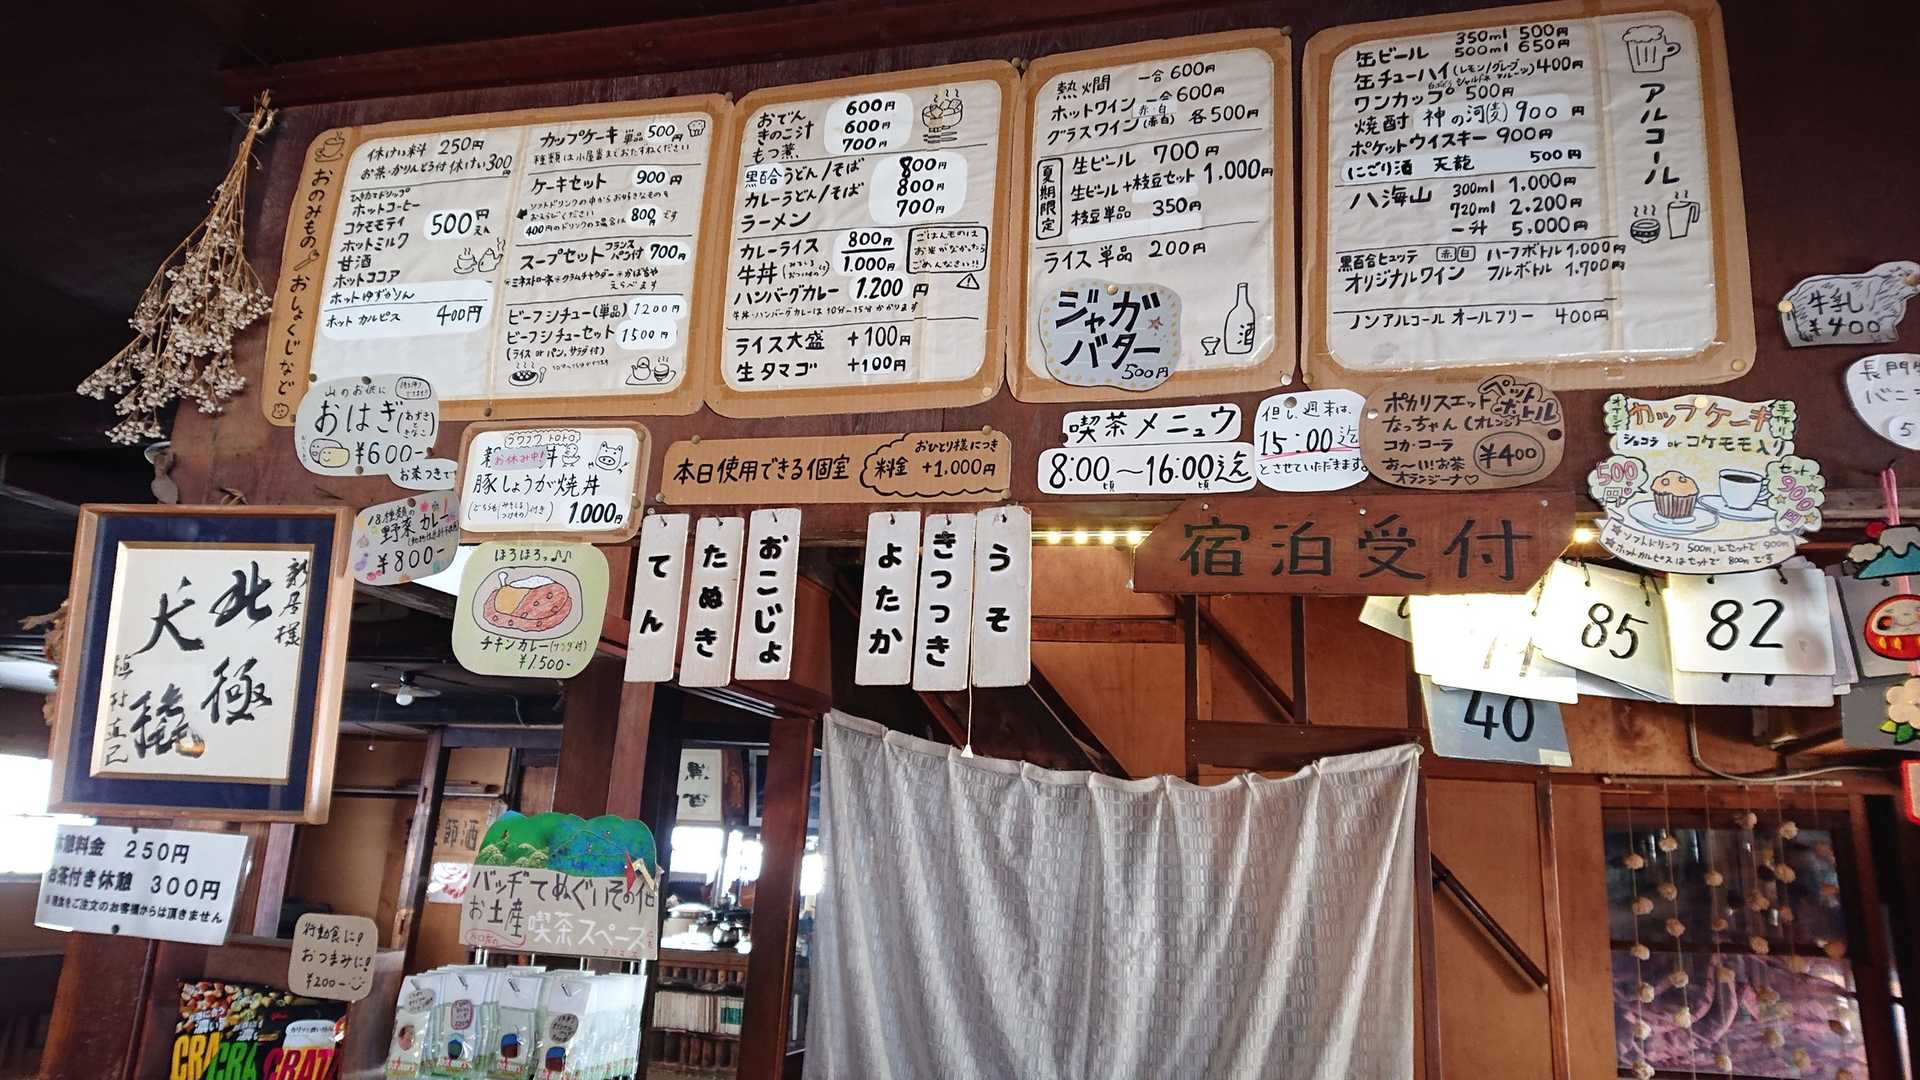 おのみもの おしょくじなど
休けい料 250円
お茶・かりんとう付休けい300円
ひきたてドリップ
ホットコーヒー
コケモモティ
ホットミルク
甘酒
ホットココア
500円
ホットゆずかりん
ホットカルピス 400円
カップケーキ 単品500円
種類は小屋番までおたずねください
ケーキセット 900円
ソフトドリンクの中からお好きなものを
おえらびください
400円のドリンクの場合は800円です
スープセット フランスパン付 700円
ミネストローネ・クラムチャウダー・かぼちゃ
えらべます
ビーフシチュー(単品) 1200円
ビーフシチューセット 1500円
(ライス or パン、サラダ付)
おでん 600円
きのこ汁 600円
もつ煮 700円
黒百合うどん/そば 800円
カレーうどん/そば 800円
ラーメン 700円
カレーライス 800円
牛丼 1.000円
ハンバーグカレー 1.200円
牛丼・ハンバーグカレーは10分~15分かかります
ごはんものは
お米がなかったら
ごめんなさい!!
ライス大盛 +100円
生タマゴ +100円
熱燗 一合600円
ホットワイン 一合600円
グラスワイン(赤・白) 各500円
夏期限定
生ビール 700円
生ビール+枝豆セット 1,000円
枝豆単品 350円
ライス単品 200円
ジャガバター
500円
酒
アルコール
缶ビール 350ml 500円
500ml 650円
缶チューハイ 400円
ワンカップ 500円
焼酎 神の河(麦) 900円
ポケットウイスキー 900円
にごり酒 天龍 500円
八海山 300ml 1.000円
720ml 2.200円
一升 5.000円
黒百合ヒュッテ 赤 白 ハーフボトル 1,000円
オリジナルワイン フルボトル 1,700円
ノンアルコール オールフリー 400円
牛乳
¥400
山のお供に
おはぎ(あずきときなこ)
¥600-
お茶つきで
お休み中!
豚しょうが焼丼
1.000円
本日使用できる個室
おひとり様につき
料金 +1,000円
喫茶メニュウ
8:00頃~16:00頃迄
但し、週末は、
15:00迄
とさせていただきます。
ポカリスエット
なっちゃん(オレンジ)
コカ・コーラ
お~い!お茶
オランジーナ
ペットボトル
¥400
カップケーキ
ショコラ or コケモモ入り
500円
セット900円
ソフトドリンク500円とセットで900円
ホットカルピスはセットで800円です
18種類の
野菜カレー
¥800-
ほろほろっ♪♪
チキンカレー(サラダ付)
¥1,500-
てん
たぬき
おこじょ
よたか
きつつき
うそ
宿泊受付
85
82
40
新居様
北極
犬橇
植村直己
休憩料金 250円
お茶付き休憩 300円
行動食に!
おつまみに!
¥200-
バッヂてぬぐいその他
お土産
喫茶スペース